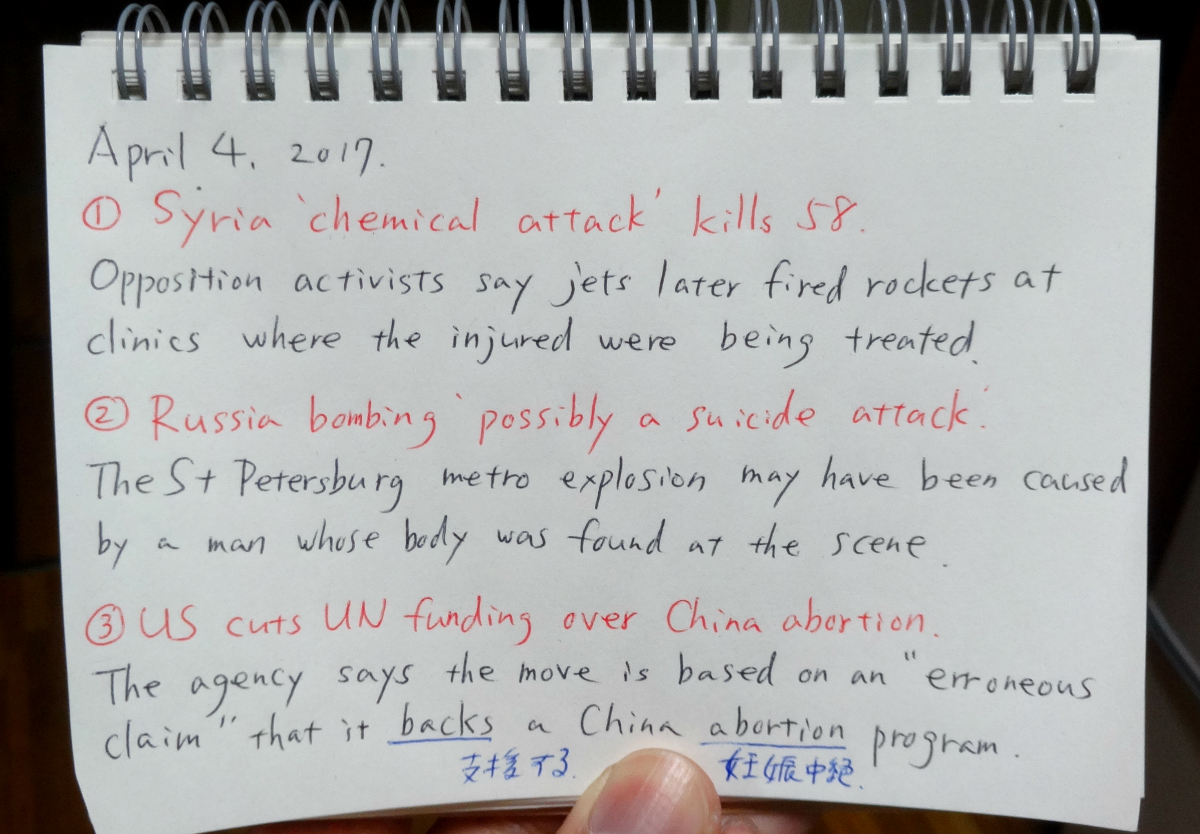 April 4. 2017.
① Syria 'chemical attack' kills 58.
Opposition activists say jets later fired rockets at
clinics where the injured were being treated.
② Russia bombing 'possibly a suicide attack.'
The St Petersburg metro explosion may have been caused
by a man whose body was found at the scene.
③ US cuts UN funding over China abortion.
The agency says the move is based on an "erroneous
claim" that it backs a China abortion program.
支援する. 妊娠中絶.